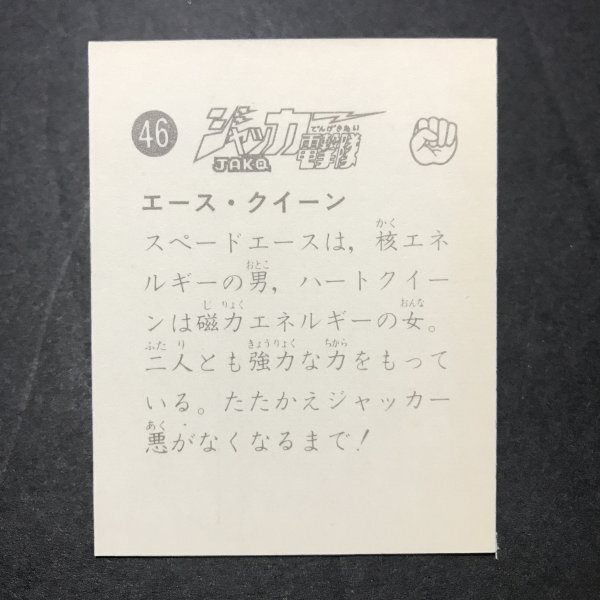 46
ジャッカー
でんげきたい
電撃隊
JAKQ
エース・クイーン
スペードエースは，核エネ
ルギーの男，ハートクイー
ンは磁力エネルギーの女。
二人とも強力な力をもって
いる。たたかえジャッカー
悪がなくなるまで！